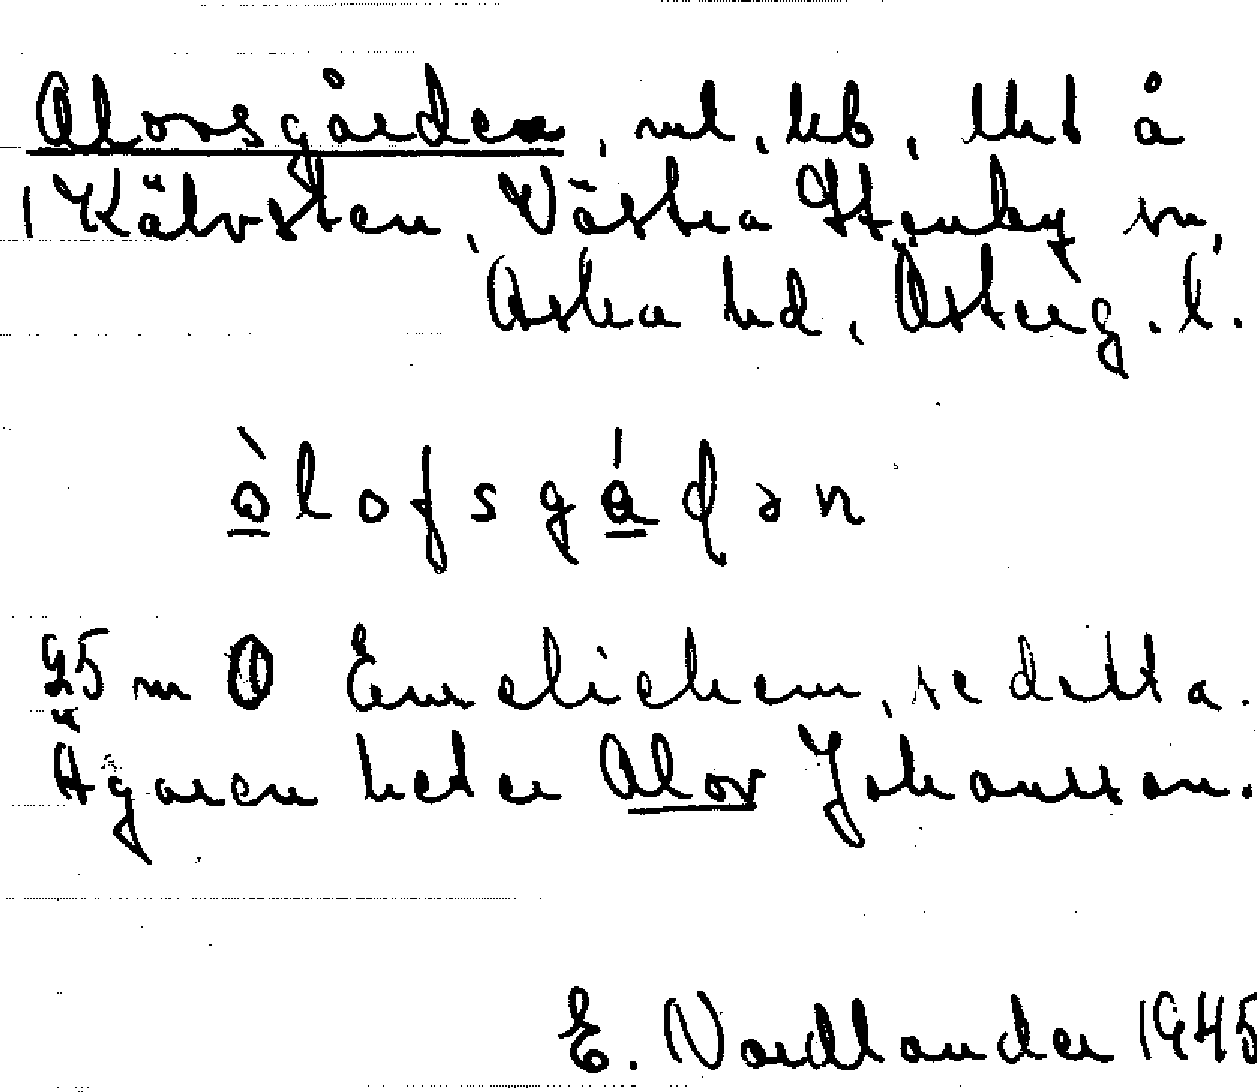 Olovsgården, ml. hb, lht å
1 Kälvsten, Västra Stenby sn,
Aska hd, Österg. l.
òlofsgádən
25 m O Emeliehem, se detta.
Ägaren heter Olov Johansson.
E. Nordlander 1945